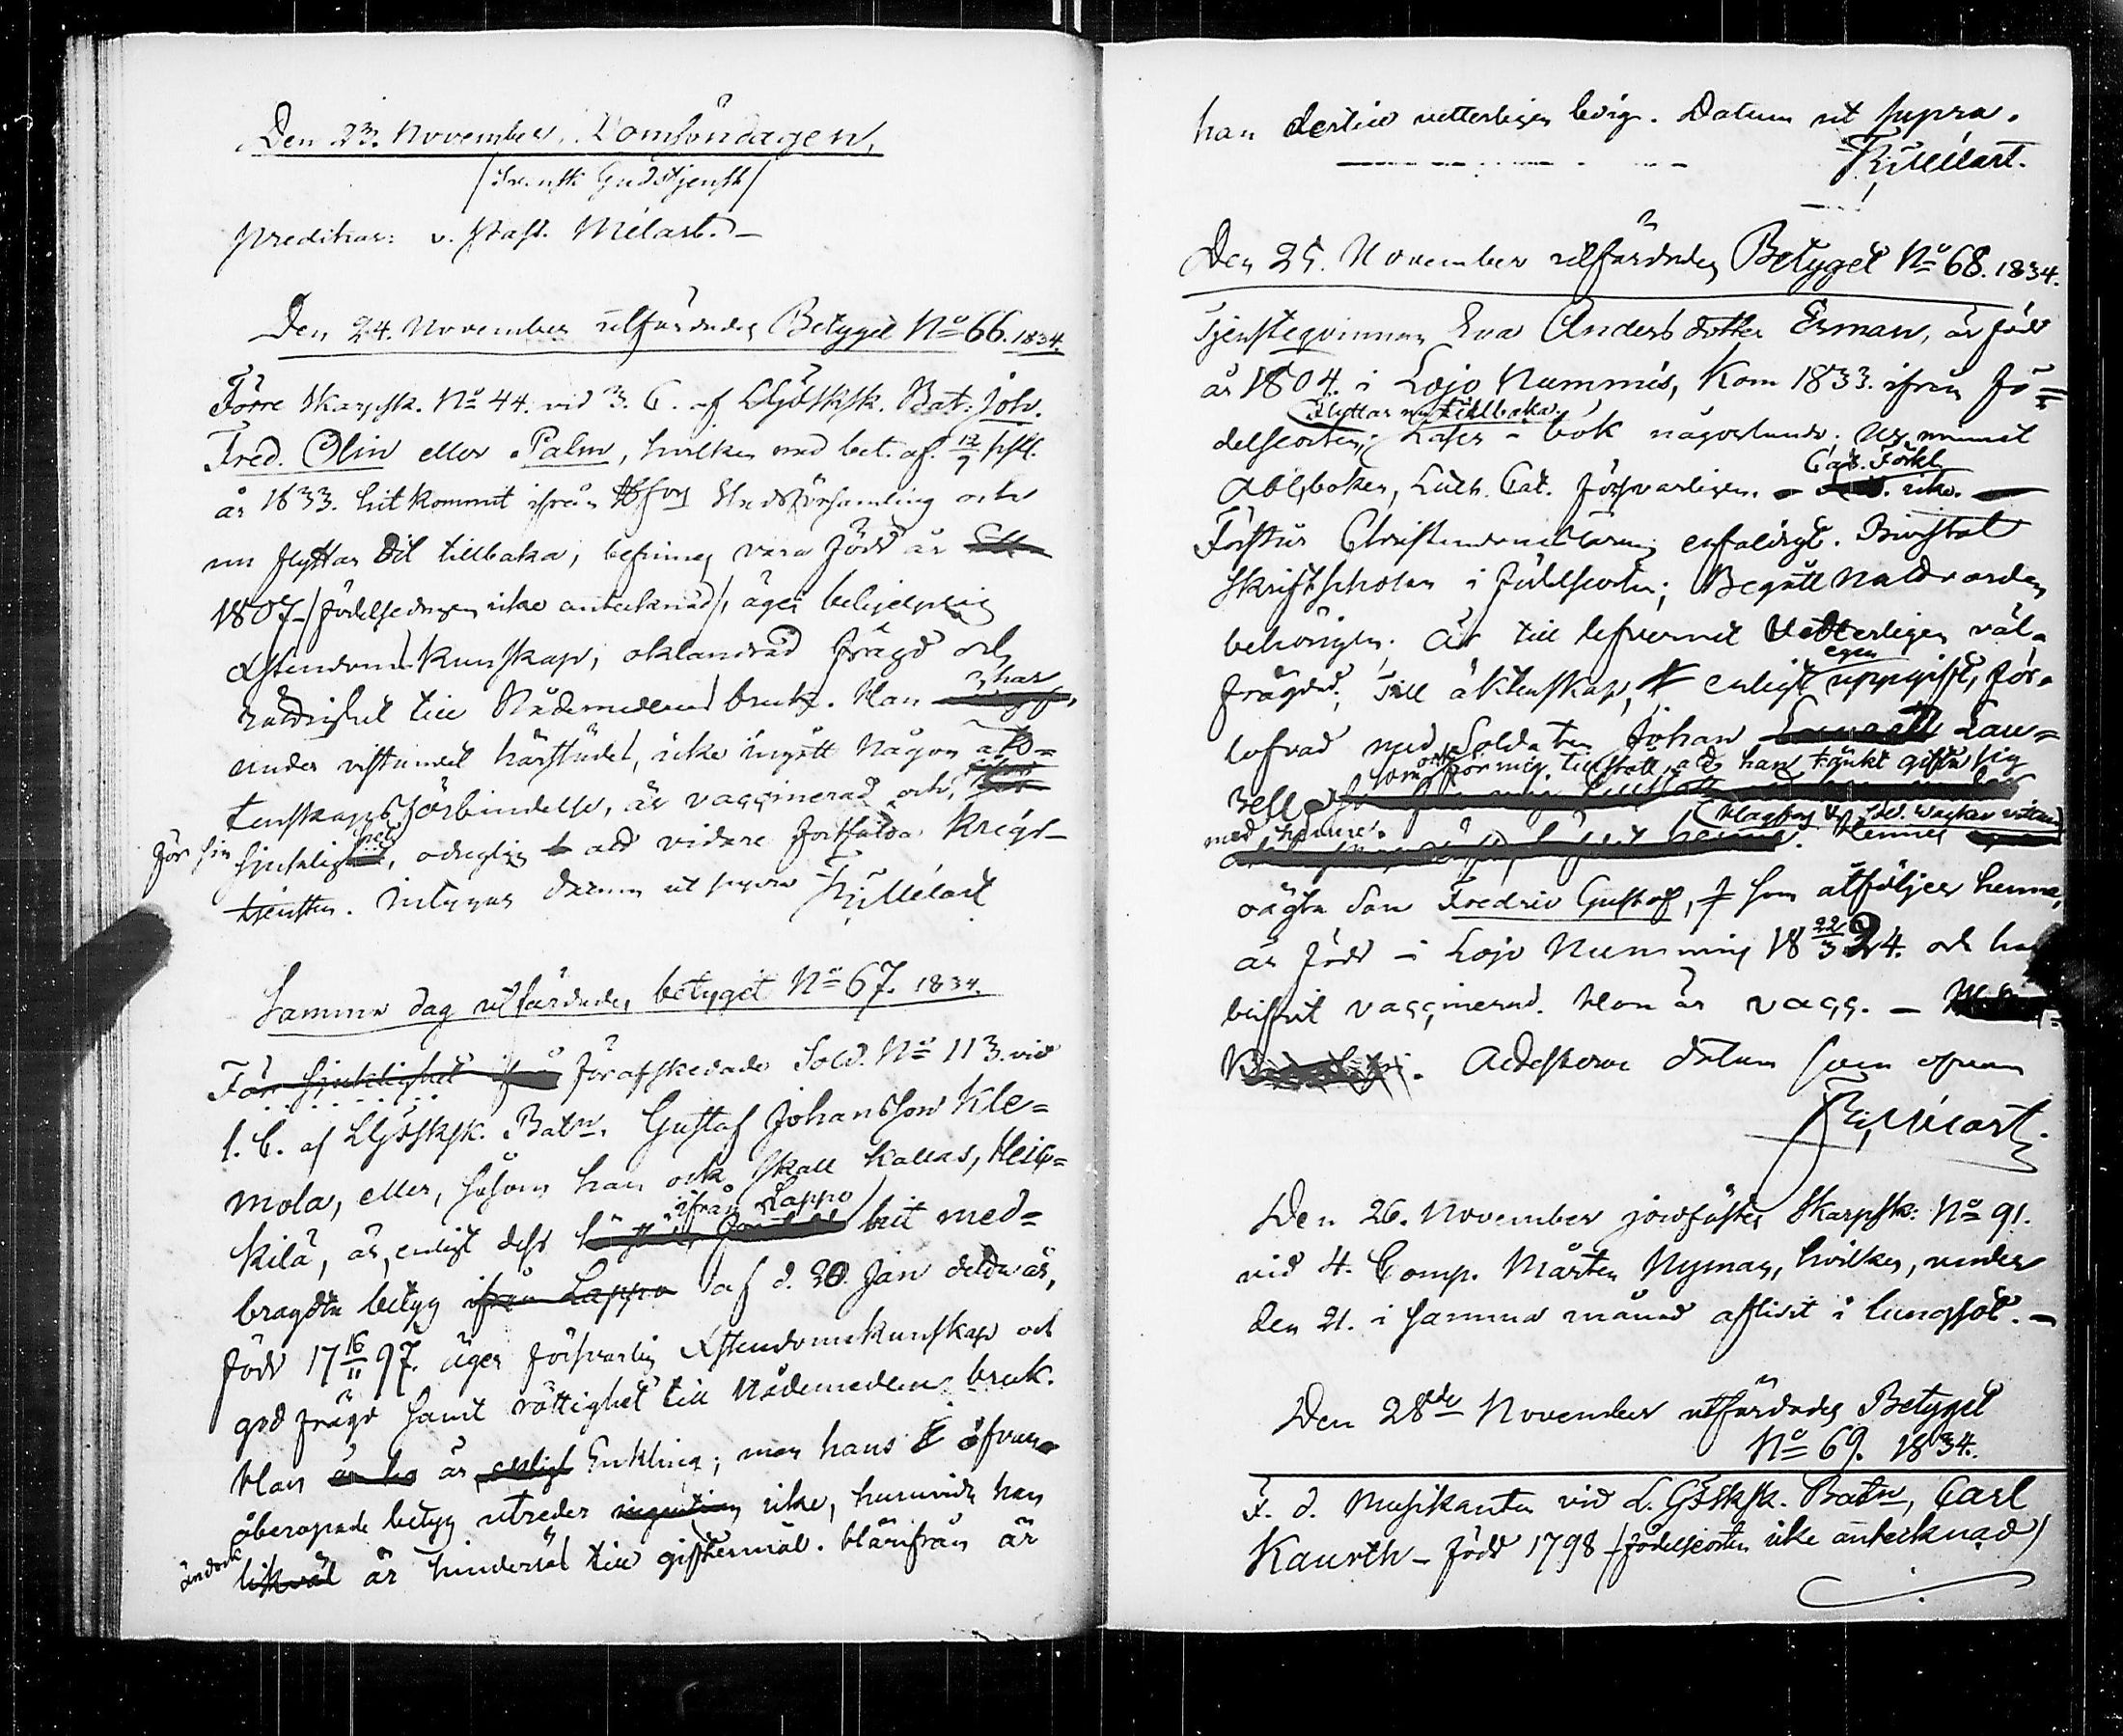 Den 23. November, Domsöndagen,
/Svensk Gudstjenst/
Predikar: v. Past. Mélart. –
Den 24. November utfärdades Betyget No 66. 1834.
Förre Skarpsk. No 44. vid 3. C. af LGdSkSk. Bat. Joh.
Fred. Olin eller Palm, hvilken med bet. af 12/7 sistl.
år 1833. hit kommit ifrån Hfors Stadsförsamling och
nu flyttar dit tillbaka, befinnes vara född år
1807 /födelsedagen icke antecknad/, äger behjelplig
Xstendoms kunskap, oklandrad frägd och
rättighet till Nådemedlens bruk. Han har
under vistandet härstädes, icke ingått någon äk=
tenskapsförbindelse, är vaccinerad och,
för sin sjuklighet, oduglig att vidare fortsätta Krigs-
tjensten. Intygas datum ut supra F. Mélart
Samma dag utfärdades betyget No 67. 1834.
För sjuklighet ifrån förafskedade Sold. No 113. vid
1. C. af LGdSkSk. Batn. Gustaf Johansson Kle=
mola, eller, såsom han ock skall kallas, Heik=
ifrån Lappo
kilä, är, enligt dess hit med=
bragdta betyg ifrån Lappo af d. 20. Jan detta år,
född 17 16/11 97. äger försvarlig Xstendomskunskap och
god frägd samt rättighet till Nådemedlens bruk.
Han är enligt Enkling; men hans ofvan
åberopade betyg utreder icke, huruvida han
ändock likväl är hinderlös till giftermål. Härifrån är
han dertill vetterligen ledig. Datum ut supra.
F. Mélart.
Den 25. November utfärdades Betyget No 68. 1834.
Tjensteqvinnan Eva Anders dotter Erman, är född
år 1804. i Lojo Nummis, Kom 1833. ifrån fö=
flyttar nu tillbaka.
delseorten; Läser i bok någorlunda; Ur minnet
Cat. Förkl.
Abcboken, Luth. Cat. försvarligen. icke.
Förstår Christendoms läran enfaldigt. Bivistat
Skriftskolan i födelseorten; Begått Nattvarden
behörigen. Är till lefvernet Vetterligen väl
egen
frägdad; Till äktenskap, enligt uppgift, för=
lofvad med Soldaten Johan Lau=
som ock för mig tillstått, att han tänkt gifta sig
rell
med henne. Hennes
oägta Son Fredric Gustaf, som åtföljer henne,
är född i Lojo Nummis 18 22/3 24. och har
blifvit vaccinerad. Hon är vacc. –
Attesteras datum som ofvan
F. Mélart.
Den 26. November jordfästes Skarpsk: No 91.
vid 4. Comp. Mårten Nyman, hvilken, under
den 21. i samma månad aflidit i lungsot. –
Den 28de November utfärdades Betyget
No 69. 1834.
F. d. Musikanten vid L. GdSkSk. Batn, Carl
Kaurth – född 1798 /födelseorten icke antecknad/